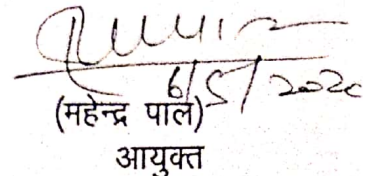 6/5/2020
(महेन्द्र पाल)
आयुक्त